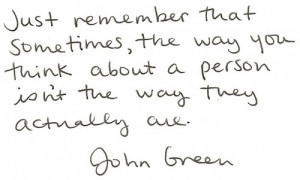 Just remember that
sometimes, the way you
think about a person
isn't the way they
actually are.
John Green